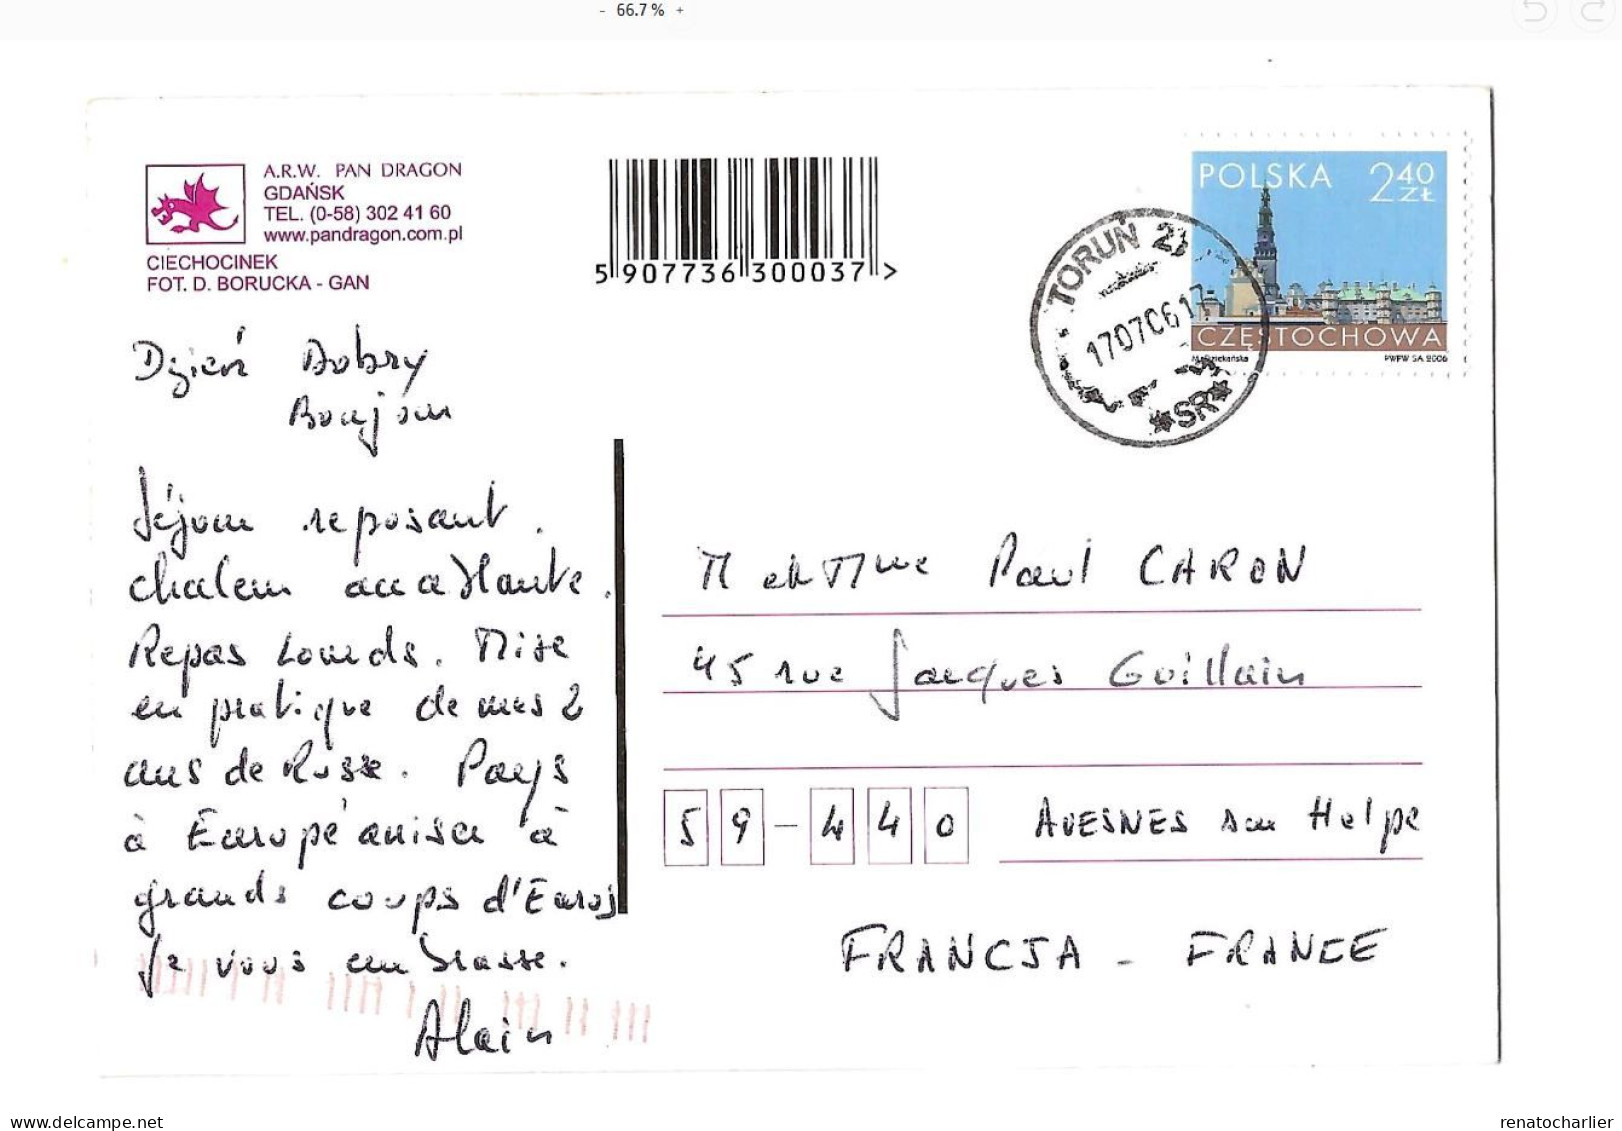 - 66.7 % +
A.R.W. PAN DRAGON
GDAŃSK
TEL. (0-58) 302 41 60
www.pandragon.com.pl
CIECHOCINEK
FOT. D. BORUCKA - GAN
5 907736 300037 >
POLSKA 2 40 ZŁ
CZĘSTOCHOWA
PWPW SA. 2006
TORUŃ 2
170706 1
*SR*
Dzień Dobry
Bonjour
Séjour reposant.
chaleur accablante.
Repas lourds. Mise
en pratique de mes 2
ans de Russe. Pays
à Européaniser à
grands coups d'Euros
Je vous embrasse.
Alain
M et Mme Paul CARON
45 rue Jacques Guillain
59-440 AVESNES sur Helpe
FRANCJA - FRANCE
delcampe.net
renatocharlier